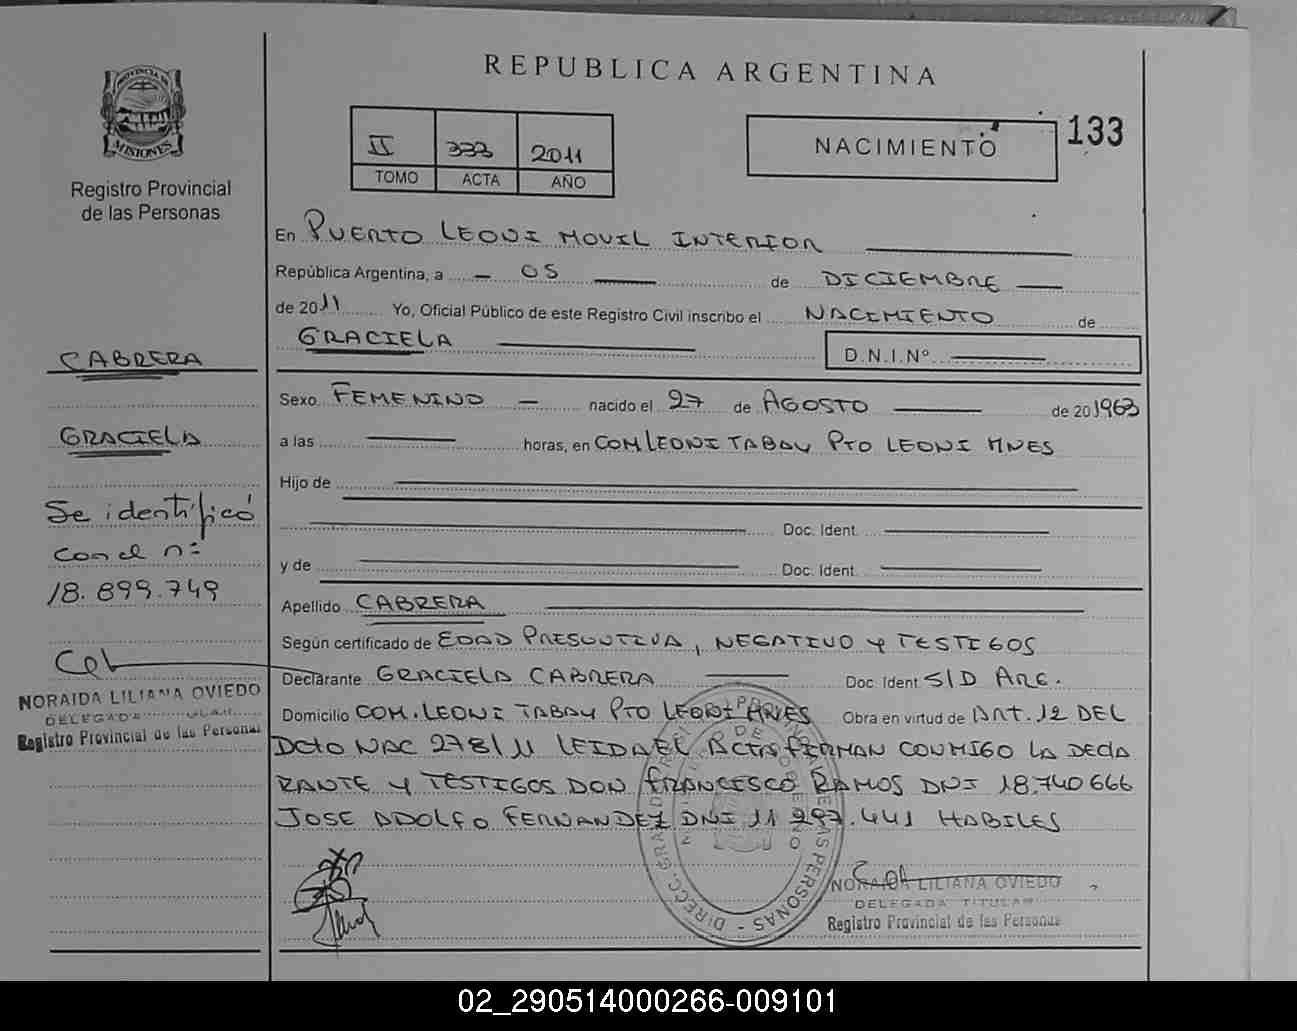 REPUBLICA ARGENTINA
PROVINCIA DE
MISIONES
Registro Provincial
de las Personas
II 333 2011
TOMO ACTA AÑO
NACIMIENTO
133
En PUERTO LEONI MOVIL INTERIOR
República Argentina, a - 05 de DICIEMBRE
de 2011 Yo, Oficial Público de este Registro Civil inscribo el NACIMIENTO de
GRACIELA
D.N.I.Nº
CABRERA
Sexo FEMENINO - nacido el 27 de AGOSTO de 201963
GRACIELA
a las horas, en COM LEONI TABAY PTO LEONI MNES
Hijo de
Se identificó
con el nº
18.899.749
Doc. Ident.
y de Doc. Ident.
Apellido CABRERA
Según certificado de EDAD PRESUNTIVA, NEGATIVO Y TESTIGOS
Declarante GRACIELA CABRERA Doc. Ident S/D ARG.
NORAIDA LILIANA OVIEDO
DELEGADA TITULAR
Registro Provincial de las Personas
Domicilio COM. LEONI TABAY PTO LEONI MNES Obra en virtud de ART. 12 DEL
DCTO NAC 278/11 LEIDA EL ACTA FIRMAN CONMIGO LA DECLA
RANTE Y TESTIGOS DON FRANCISCO RAMOS DNI 18.740666
JOSE ADOLFO FERNANDEZ DNI 11 297.441 HABILES
NORAIDA LILIANA OVIEDO
DELEGADA TITULAR
Registro Provincial de las Personas
02_290514000266-009101